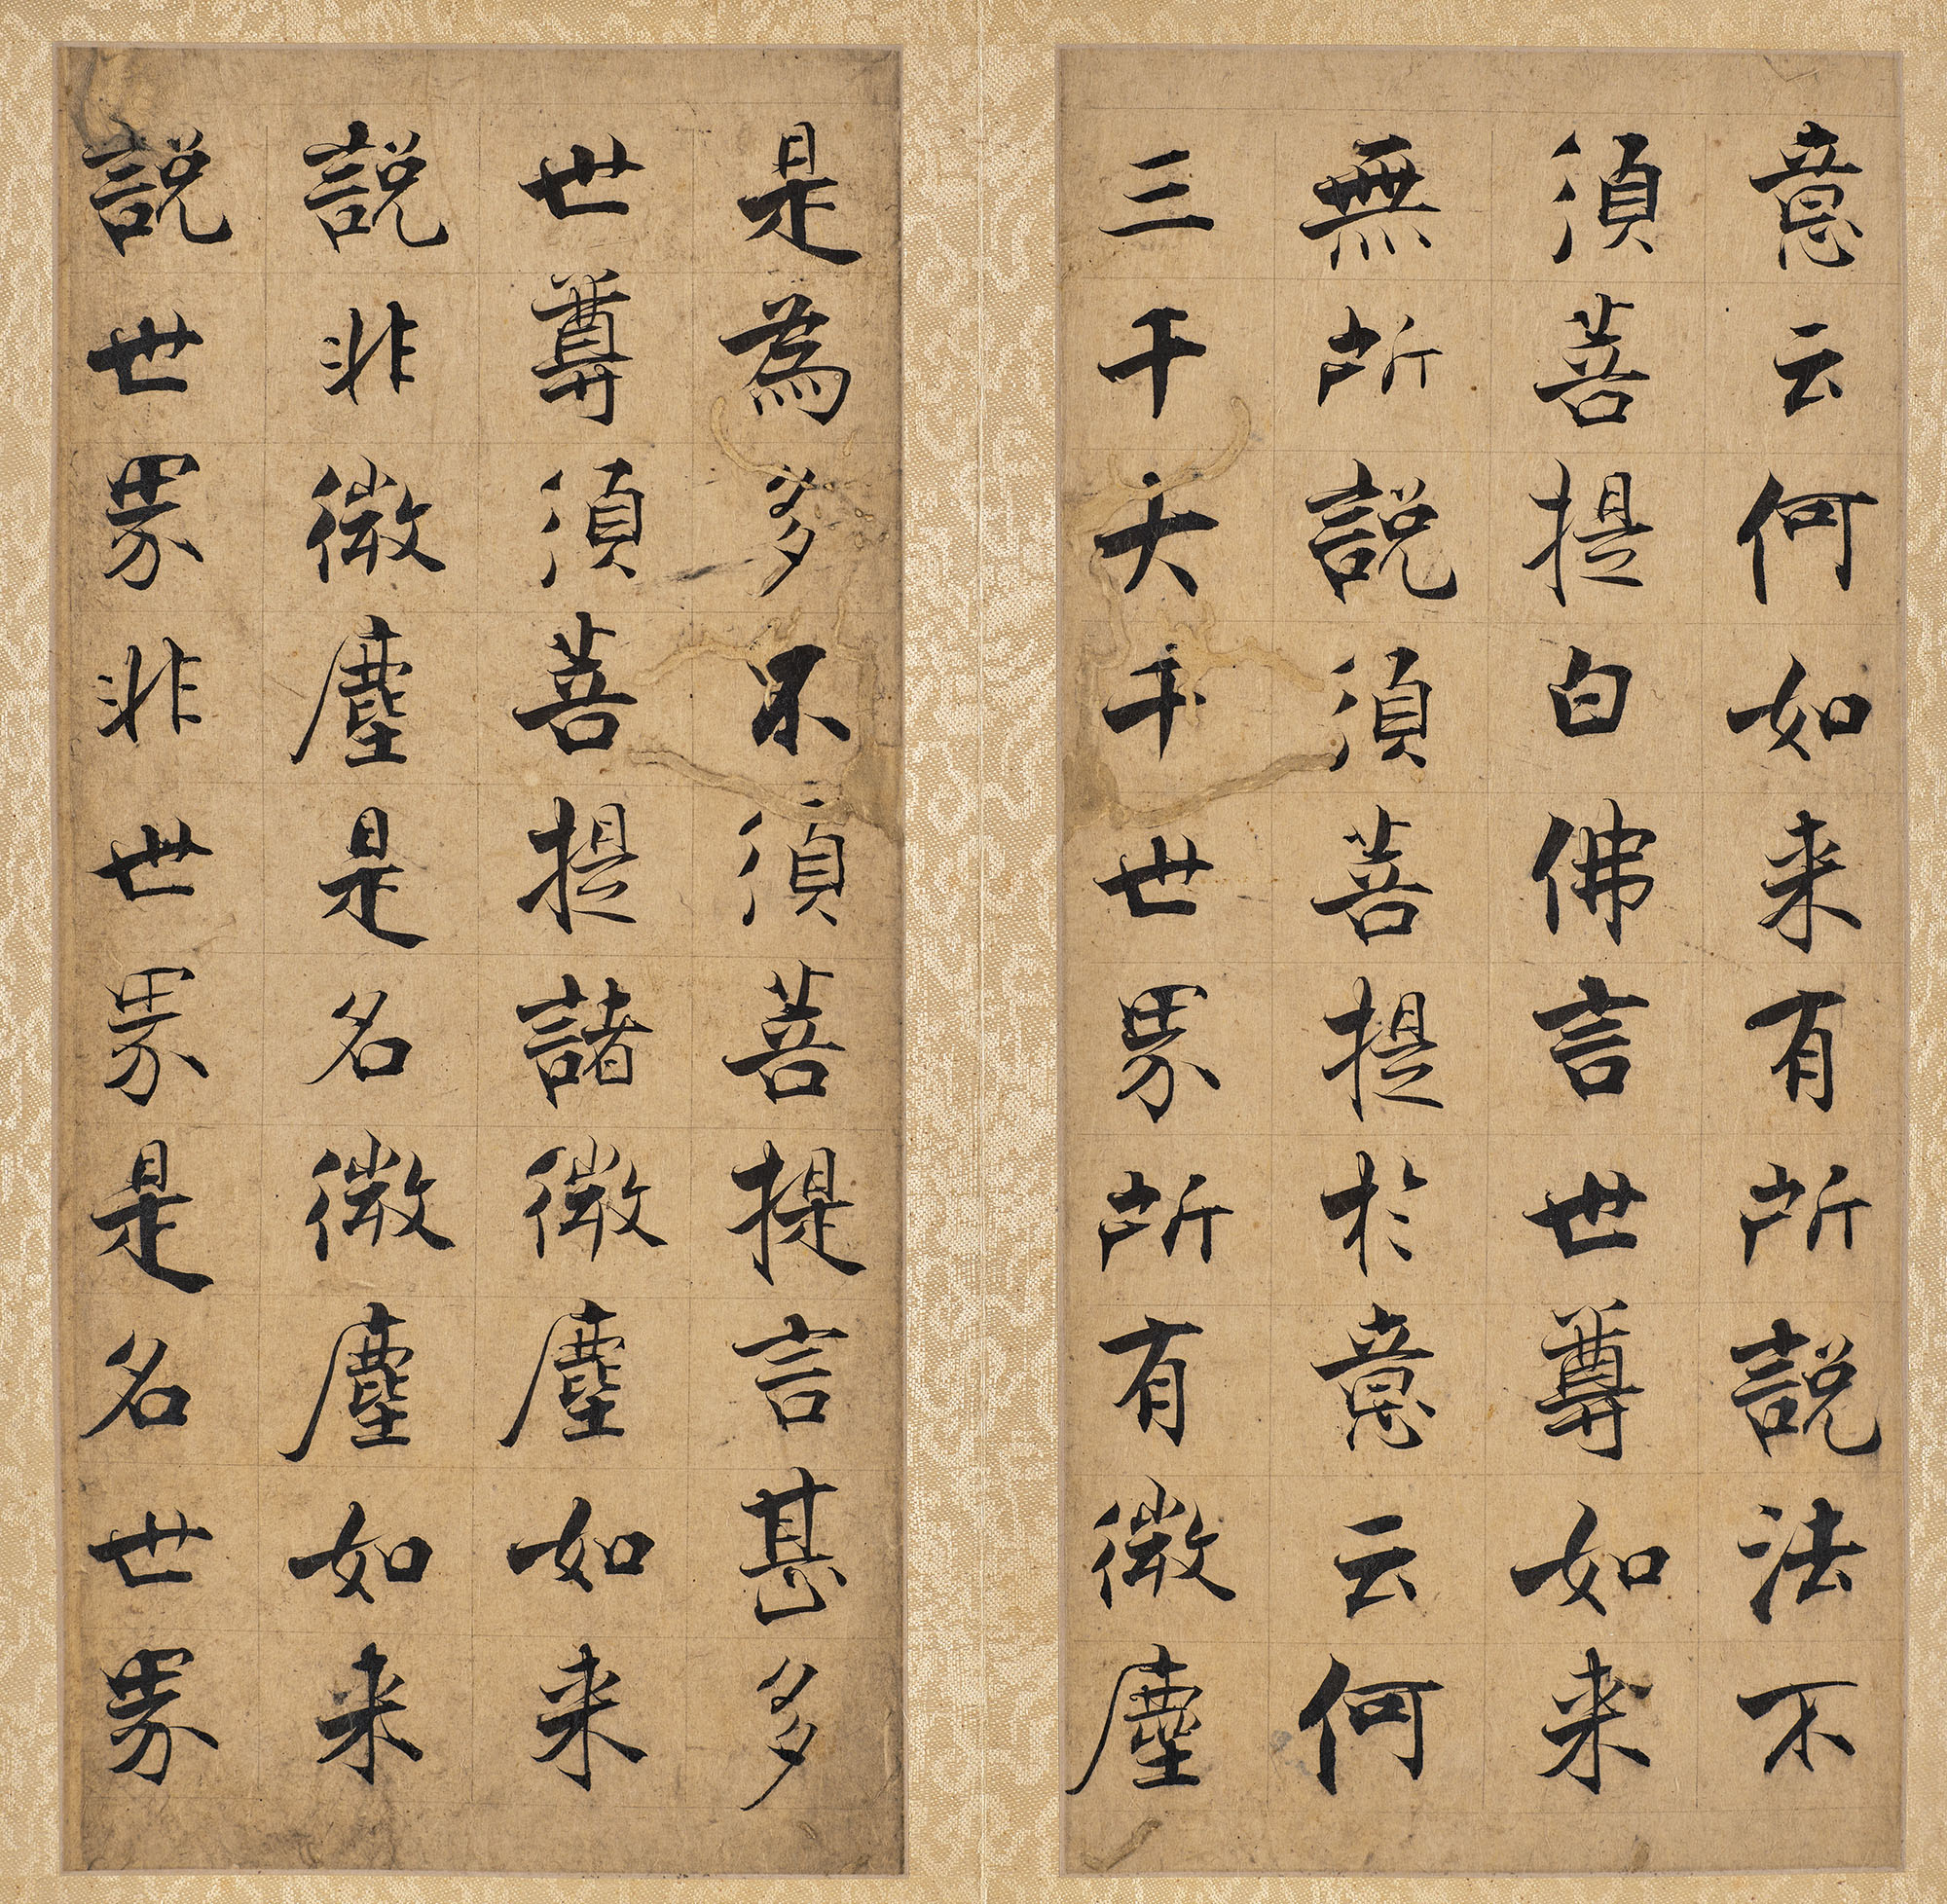 意云何如来有所說法不
須菩提白佛言世尊如来
無所說須菩提於意云何
三千大千世界所有微塵
是為多不須菩提言甚多
世尊須菩提諸微塵如来
說非微塵是名微塵如来
說世界非世界是名世界